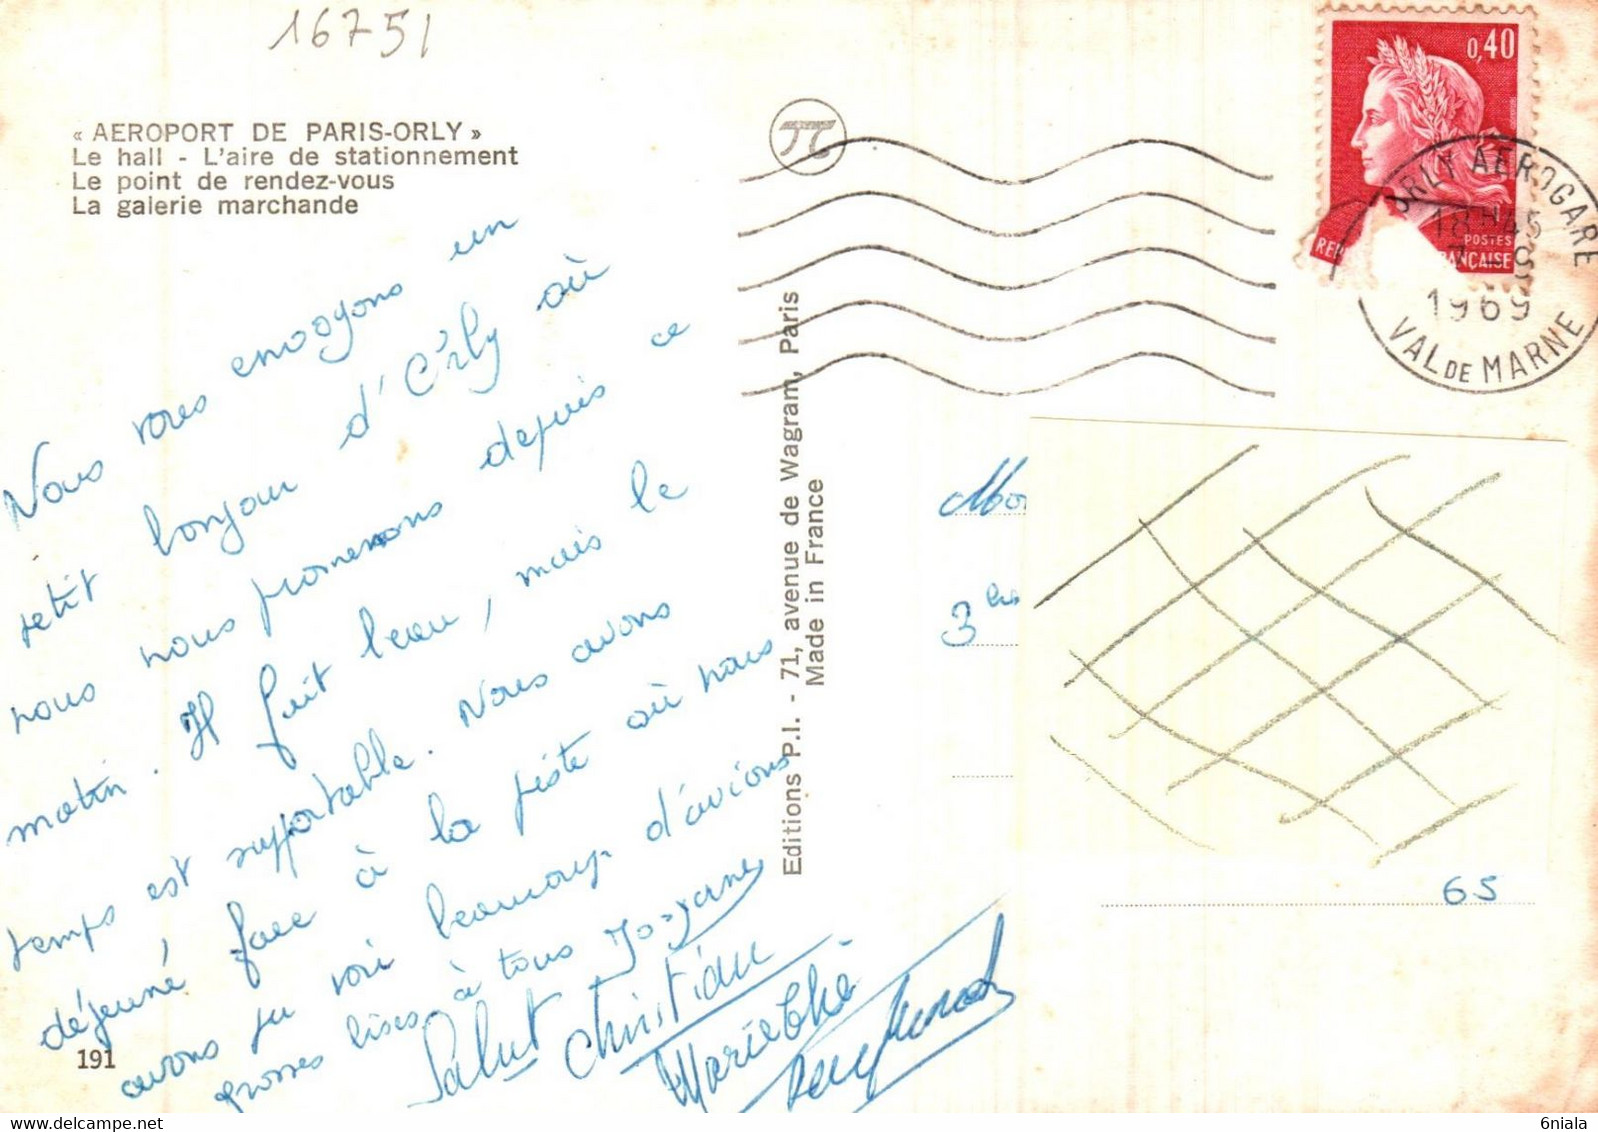 16751
« AEROPORT DE PARIS-ORLY »
Le hall - L'aire de stationnement
Le point de rendez-vous
La galerie marchande
Nous vous envoyons un
petit bonjour d'Orly où
nous nous promenons depuis ce
matin. Il fait beau, mais le
temps est supportable. Nous avons
déjeuné face à la piste où nous
avons pu voir beaucoup d'avions
grosses bises à tous
Salut Christian
191
Editions P.I. - 71, avenue de Wagram, Paris
Made in France
0,40
POSTES
ORLY AEROGARE
18H45
7-9
1969
VAL DE MARNE
Mon
3
65
6niala